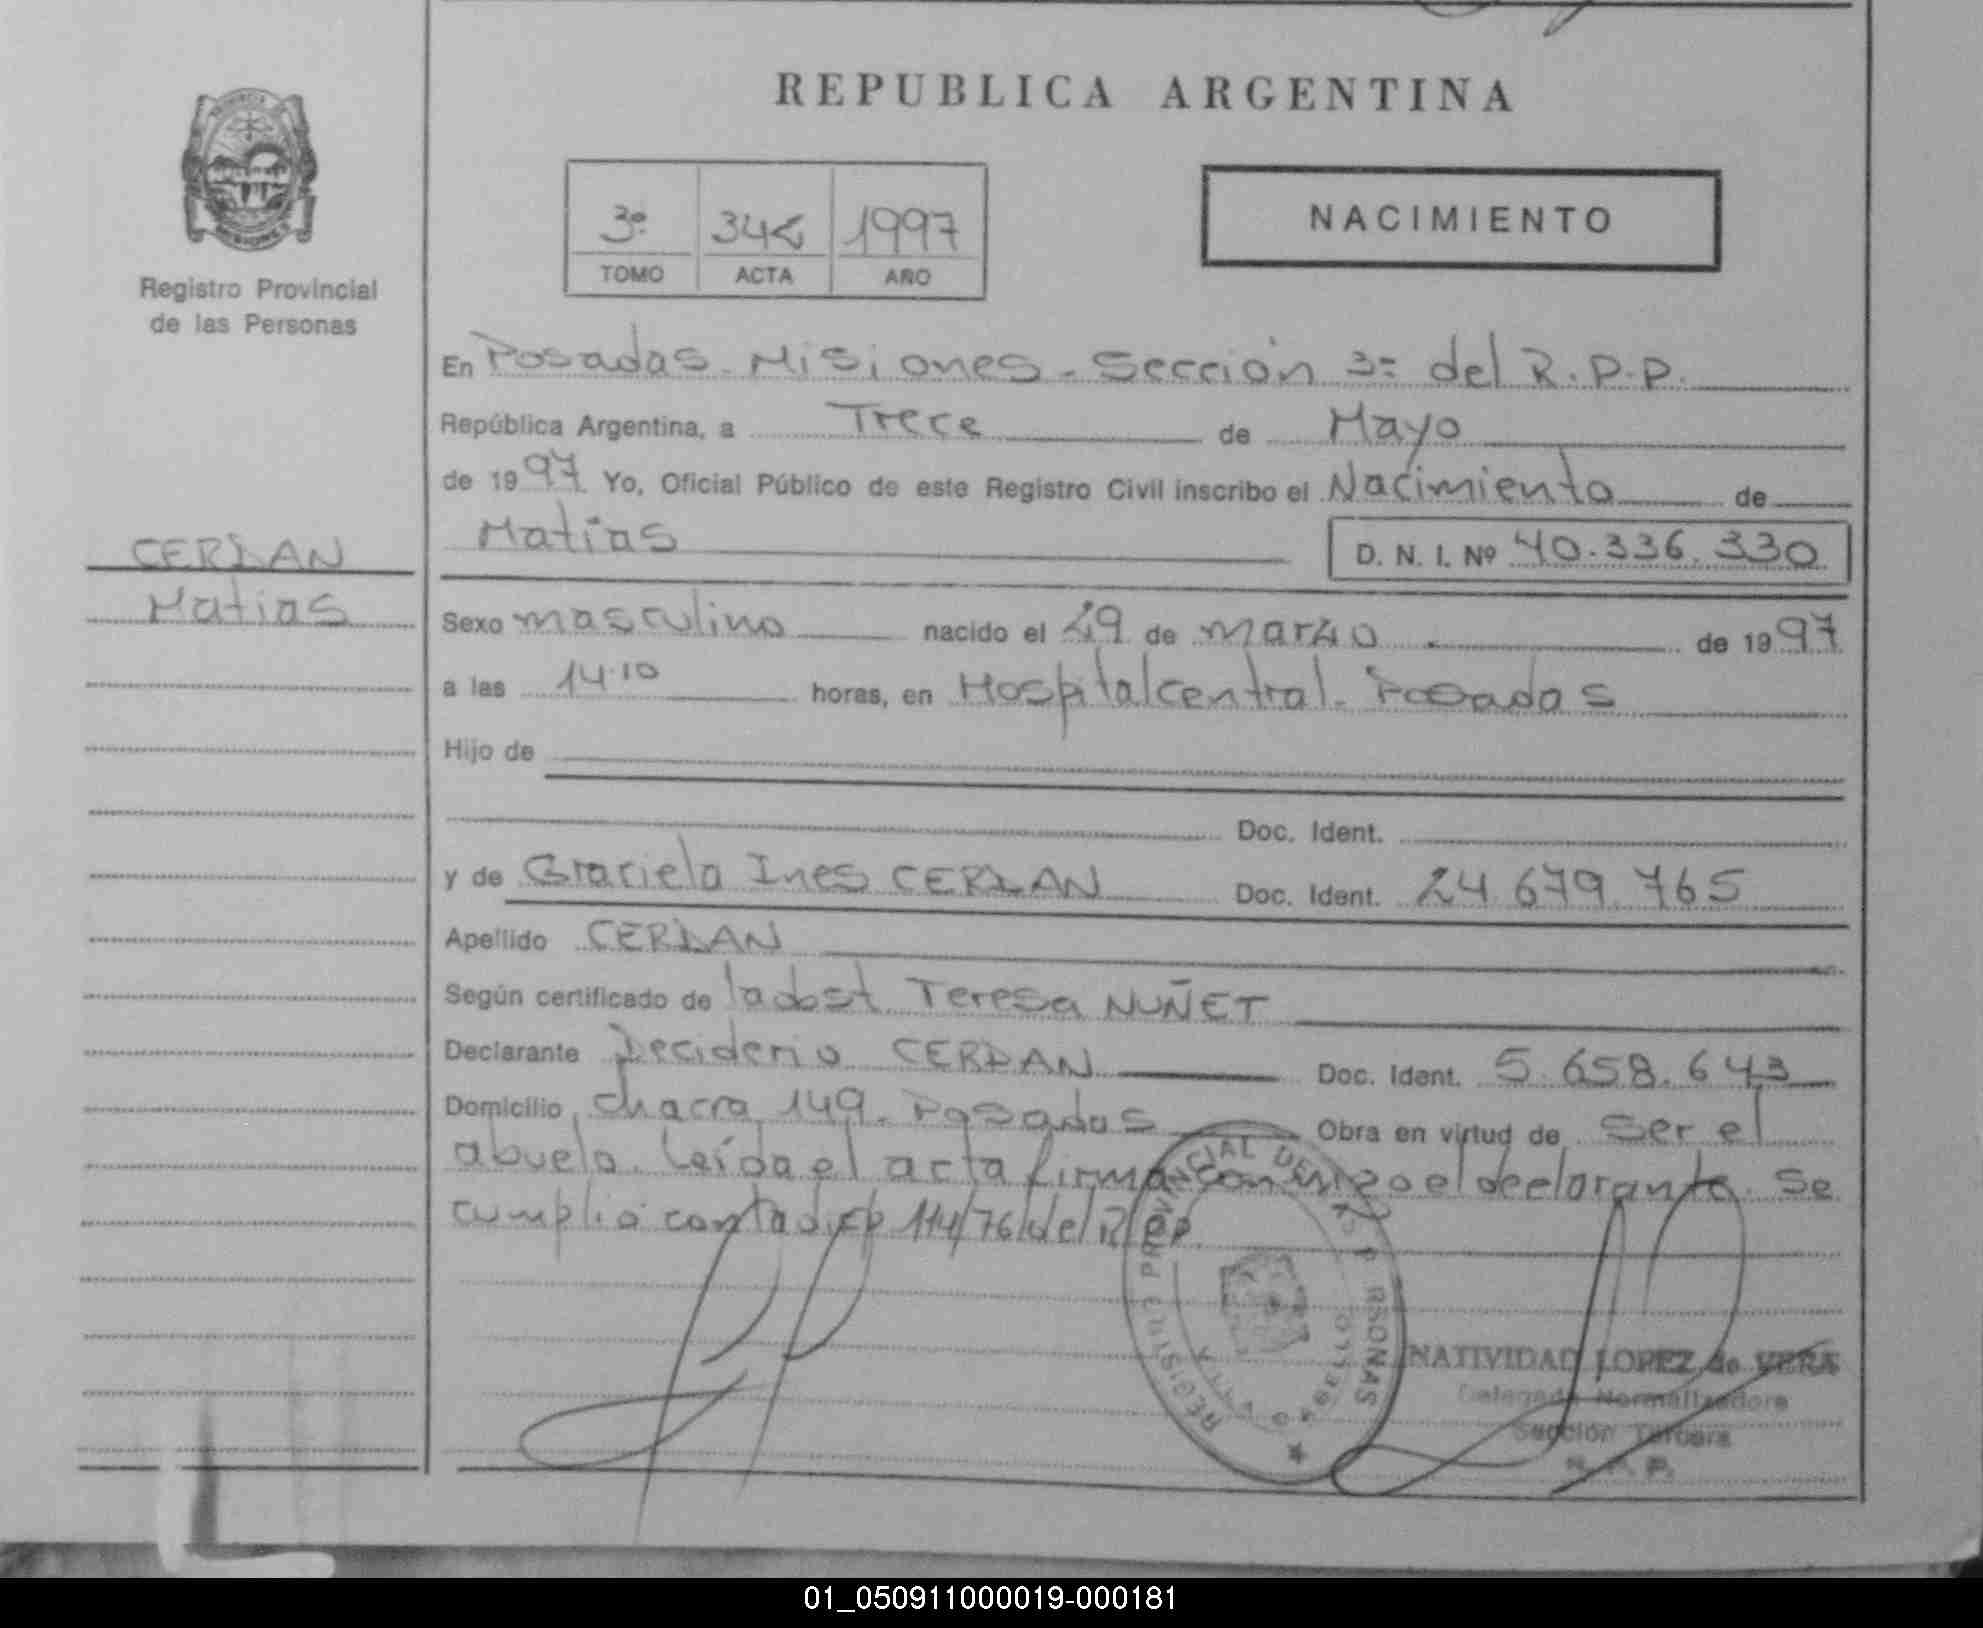 REPUBLICA ARGENTINA
Registro Provincial
de las Personas
3º 342 1997
TOMO ACTA AÑO
NACIMIENTO
En Posadas. Misiones. Sección 3º del R.P.P.
República Argentina, a Trece de Mayo
de 1997 Yo, Oficial Público de este Registro Civil inscribo el Nacimiento de
Matias D. N. I. Nº 40.336.330
CERDAN
Matias
Sexo masculino nacido el 29 de marzo de 1997
a las 14.10 horas, en Hospital central. Posadas
Hijo de
Doc. Ident.
y de Graciela Ines CERDAN Doc. Ident. 24.679.765
Apellido CERDAN
Según certificado de la obst Teresa NUÑEZ
Declarante Deciderio CERDAN Doc. Ident. 5.658.643
Domicilio chacra 149. Posadas Obra en virtud de ser el
abuelo. Leída el acta firma conmigo el declarante. Se
cumplió con la disp 114/76 del R.P.P.
REGISTRO PROVINCIAL DE LAS PERSONAS
NATIVIDAD LOPEZ de VERA
Delegada Normalizadora
Sección Tercera
R. P. P.
01_050911000019-000181